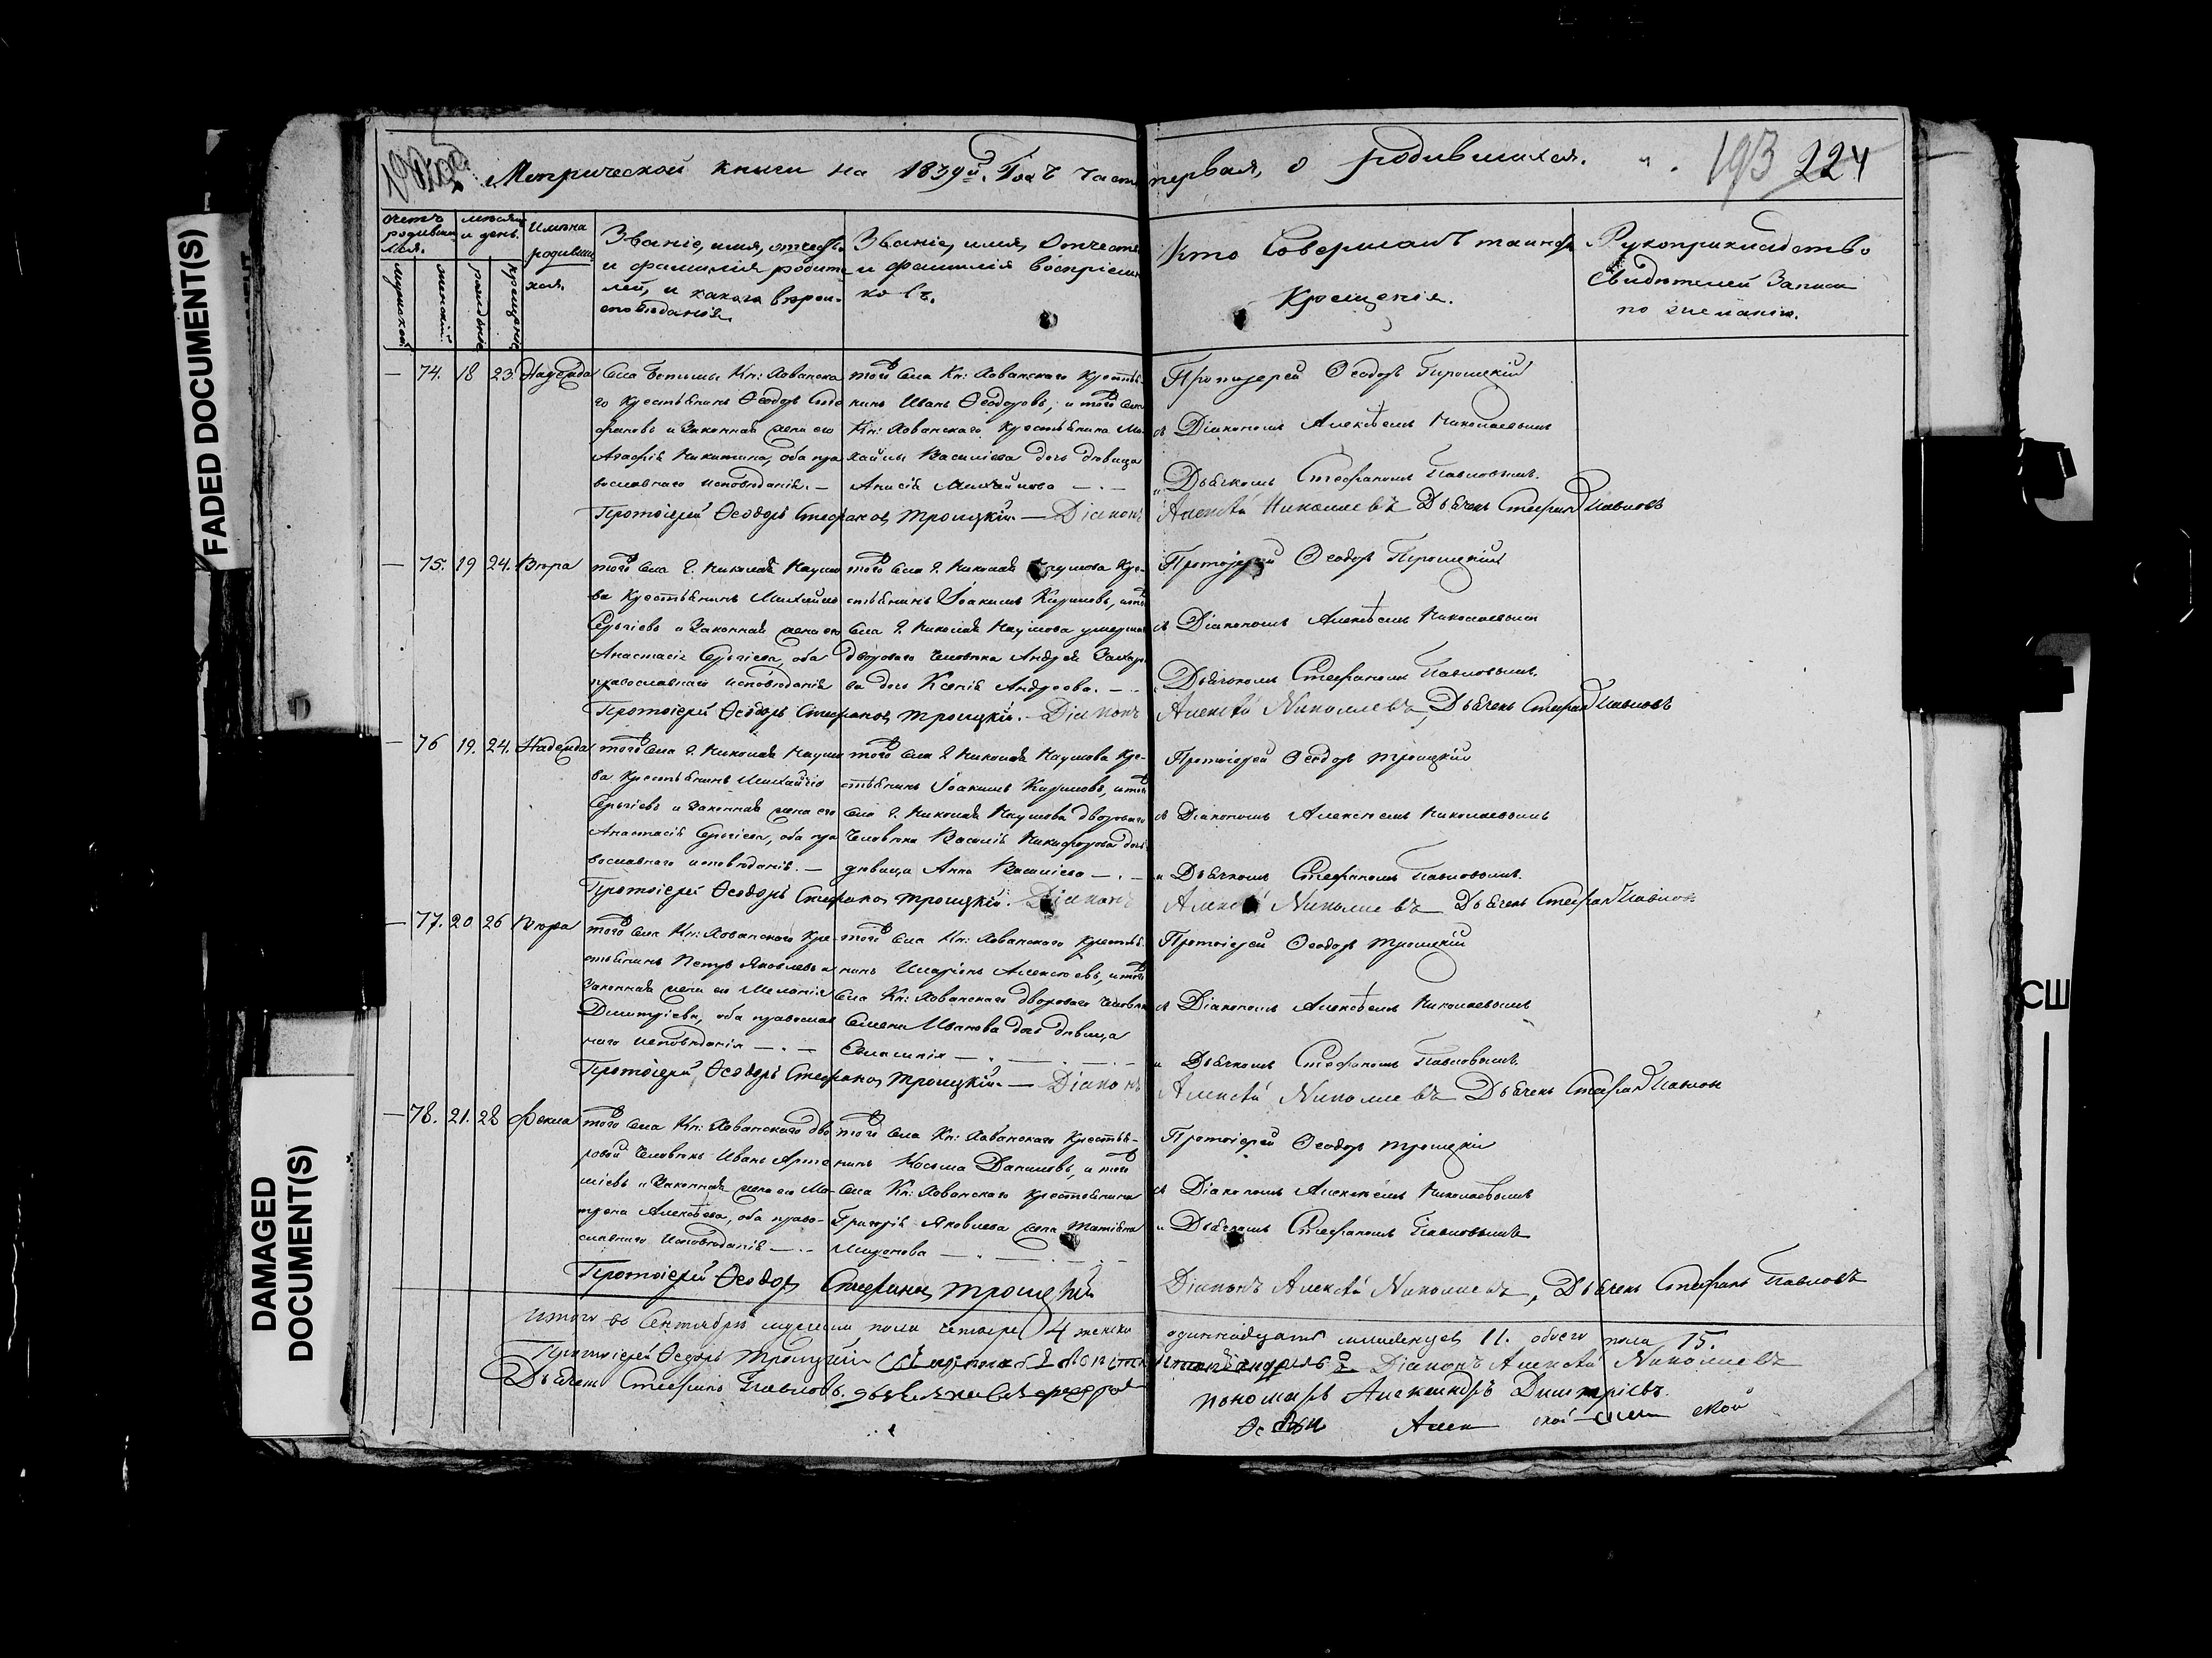 FADED DOCUMENT(S)
DAMAGED
DOCUMENT(S)
Метрической книги на 1839й Годъ часть первая, о родившихся. 193 224
счетъ родившихся.
мужеской
женскій
мѣсяцъ и день.
рожденіе
крещеніе
Имена
родивших
ся.
Званіе, имя, отчество
и фамилія родите
лей, и какого вѣрои
сповѣданія.
Званіе, имя, Отчество
и фамилія Воспріемни
ковъ.
Кто Совершалъ таинство
Крещенія.
Рукоприкладство
Свидетелей Записи
по желанію.
— 74. 18 23. Надежда
Села Кн: Хованска
го Крестьянинъ Ѳеодоръ Сте
фановъ и Законная жена его
Агафія Никитина, оба пра
вославнаго исповѣданія. —
того Села Кн: Хованскаго Крестья
нинъ Иванъ Ѳеодоровъ, и того Села
Кн: Хованскаго Крестьянина Ми
хайлы Василіева дочь дѣвица
Анисія Михайлова — . —
Протоіерей Ѳеодоръ Троицкій
съ Діакономъ Алексѣемъ Николаевымъ
и Дьячкомъ Стефаномъ Павловымъ.
Протоіерей Ѳеодоръ Стефановъ Троицкій — Діаконъ Алексѣй Николаевъ Дьячекъ Стефанъ Павловъ
— 75. 19 24. Вѣра
того Села Г. Николая Наумо
ва Крестьянинъ Михайло
Сергіевъ и Законная жена его
Анастасія Сергіева, оба
православнаго исповѣданія
того Села Г. Николая Наумова Кре
стьянинъ Іоакимъ Кириловъ, и того
Села Г. Николая Наумова умершаго
двороваго Человѣка Андрея Захаро
ва дочь Ксенія Андреева. —
Протоіерей Ѳеодоръ Троицкій
съ Діакономъ Алексѣемъ Николаевымъ
Дьячкомъ Стефаномъ Павловымъ.
Протоіерей Ѳеодоръ Стефановъ Троицкій. Діаконъ Алексѣй Николаевъ, Дьячекъ Стефанъ Павловъ
— 76 19. 24. Надежда
того Села Г. Николая Наумо
ва Крестьянинъ Михайло
Сергіевъ и Законная жена его
Анастасія Сергіева, оба пра
вославнаго исповѣданія. —
того Села Г. Николая Наумова Кре
стьянинъ Іоакимъ Кириловъ, и того
Села Г. Николая Наумова двороваго
Человѣка Василія Никифорова дочь
дѣвица Анна Василіева — . —
Протоіерей Ѳеодоръ Троицкій
съ Діакономъ Алексѣемъ Николаевымъ
и Дьячкомъ Стефаномъ Павловымъ.
Протоіерей Ѳеодоръ Стефановъ Троицкій. Діаконъ Алексѣй Николаевъ Дьячекъ Стефанъ Павловъ
— 77. 20 26 Вѣра
того Села Кн: Хованскаго Кре
стьянинъ Петръ Яковлевъ и
Законная жена его Меланія
Димитріева, оба православ
наго исповѣданія — . —
того Села Кн: Хованскаго Крестья
нинъ Иларіонъ Алексѣевъ, и того
Села Кн: Хованскаго двороваго Человѣка
Семена Иванова дочь дѣвица
Протоіерей Ѳеодоръ Троицкій
съ Діакономъ Алексѣемъ Николаевымъ
и Дьячкомъ Стефаномъ Павловымъ.
Протоіерей Ѳеодоръ Стефановъ Троицкій — Діаконъ Алексѣй Николаевъ Дьячекъ Стефанъ Павловъ
— 78. 21. 28 Фекла
того Села Кн: Хованскаго дво
ровой Человѣкъ Иванъ Арте
міевъ и Законная жена его Ма
трена Алексѣева, оба право
славнаго Исповѣданія — . —
того Села Кн: Хованскаго Крестья
нинъ Косьма Даниловъ, и того
Села Кн: Хованскаго Крестьянина
Григорія Яковлева жена Татіана
Миронова — . —
Протоіерей Ѳеодоръ Троицкій
съ Діакономъ Алексѣемъ Николаевымъ
и Дьячкомъ Стефаномъ Павловымъ
Протоіерей Ѳеодоръ Стефановъ Троицкій Діаконъ Алексѣй Николаевъ, Дьячекъ Стефанъ Павловъ
Итого въ Сентябрѣ мужеска пола четыре 4 женска одиннадцать младенцевъ 11. обоего пола 15.
Протоіерей Ѳеодоръ Троицкій Діаконъ Алексѣй Николаевъ
Дьячекъ Стефанъ Павловъ. пономарь Александръ Димитріевъ.
СШ